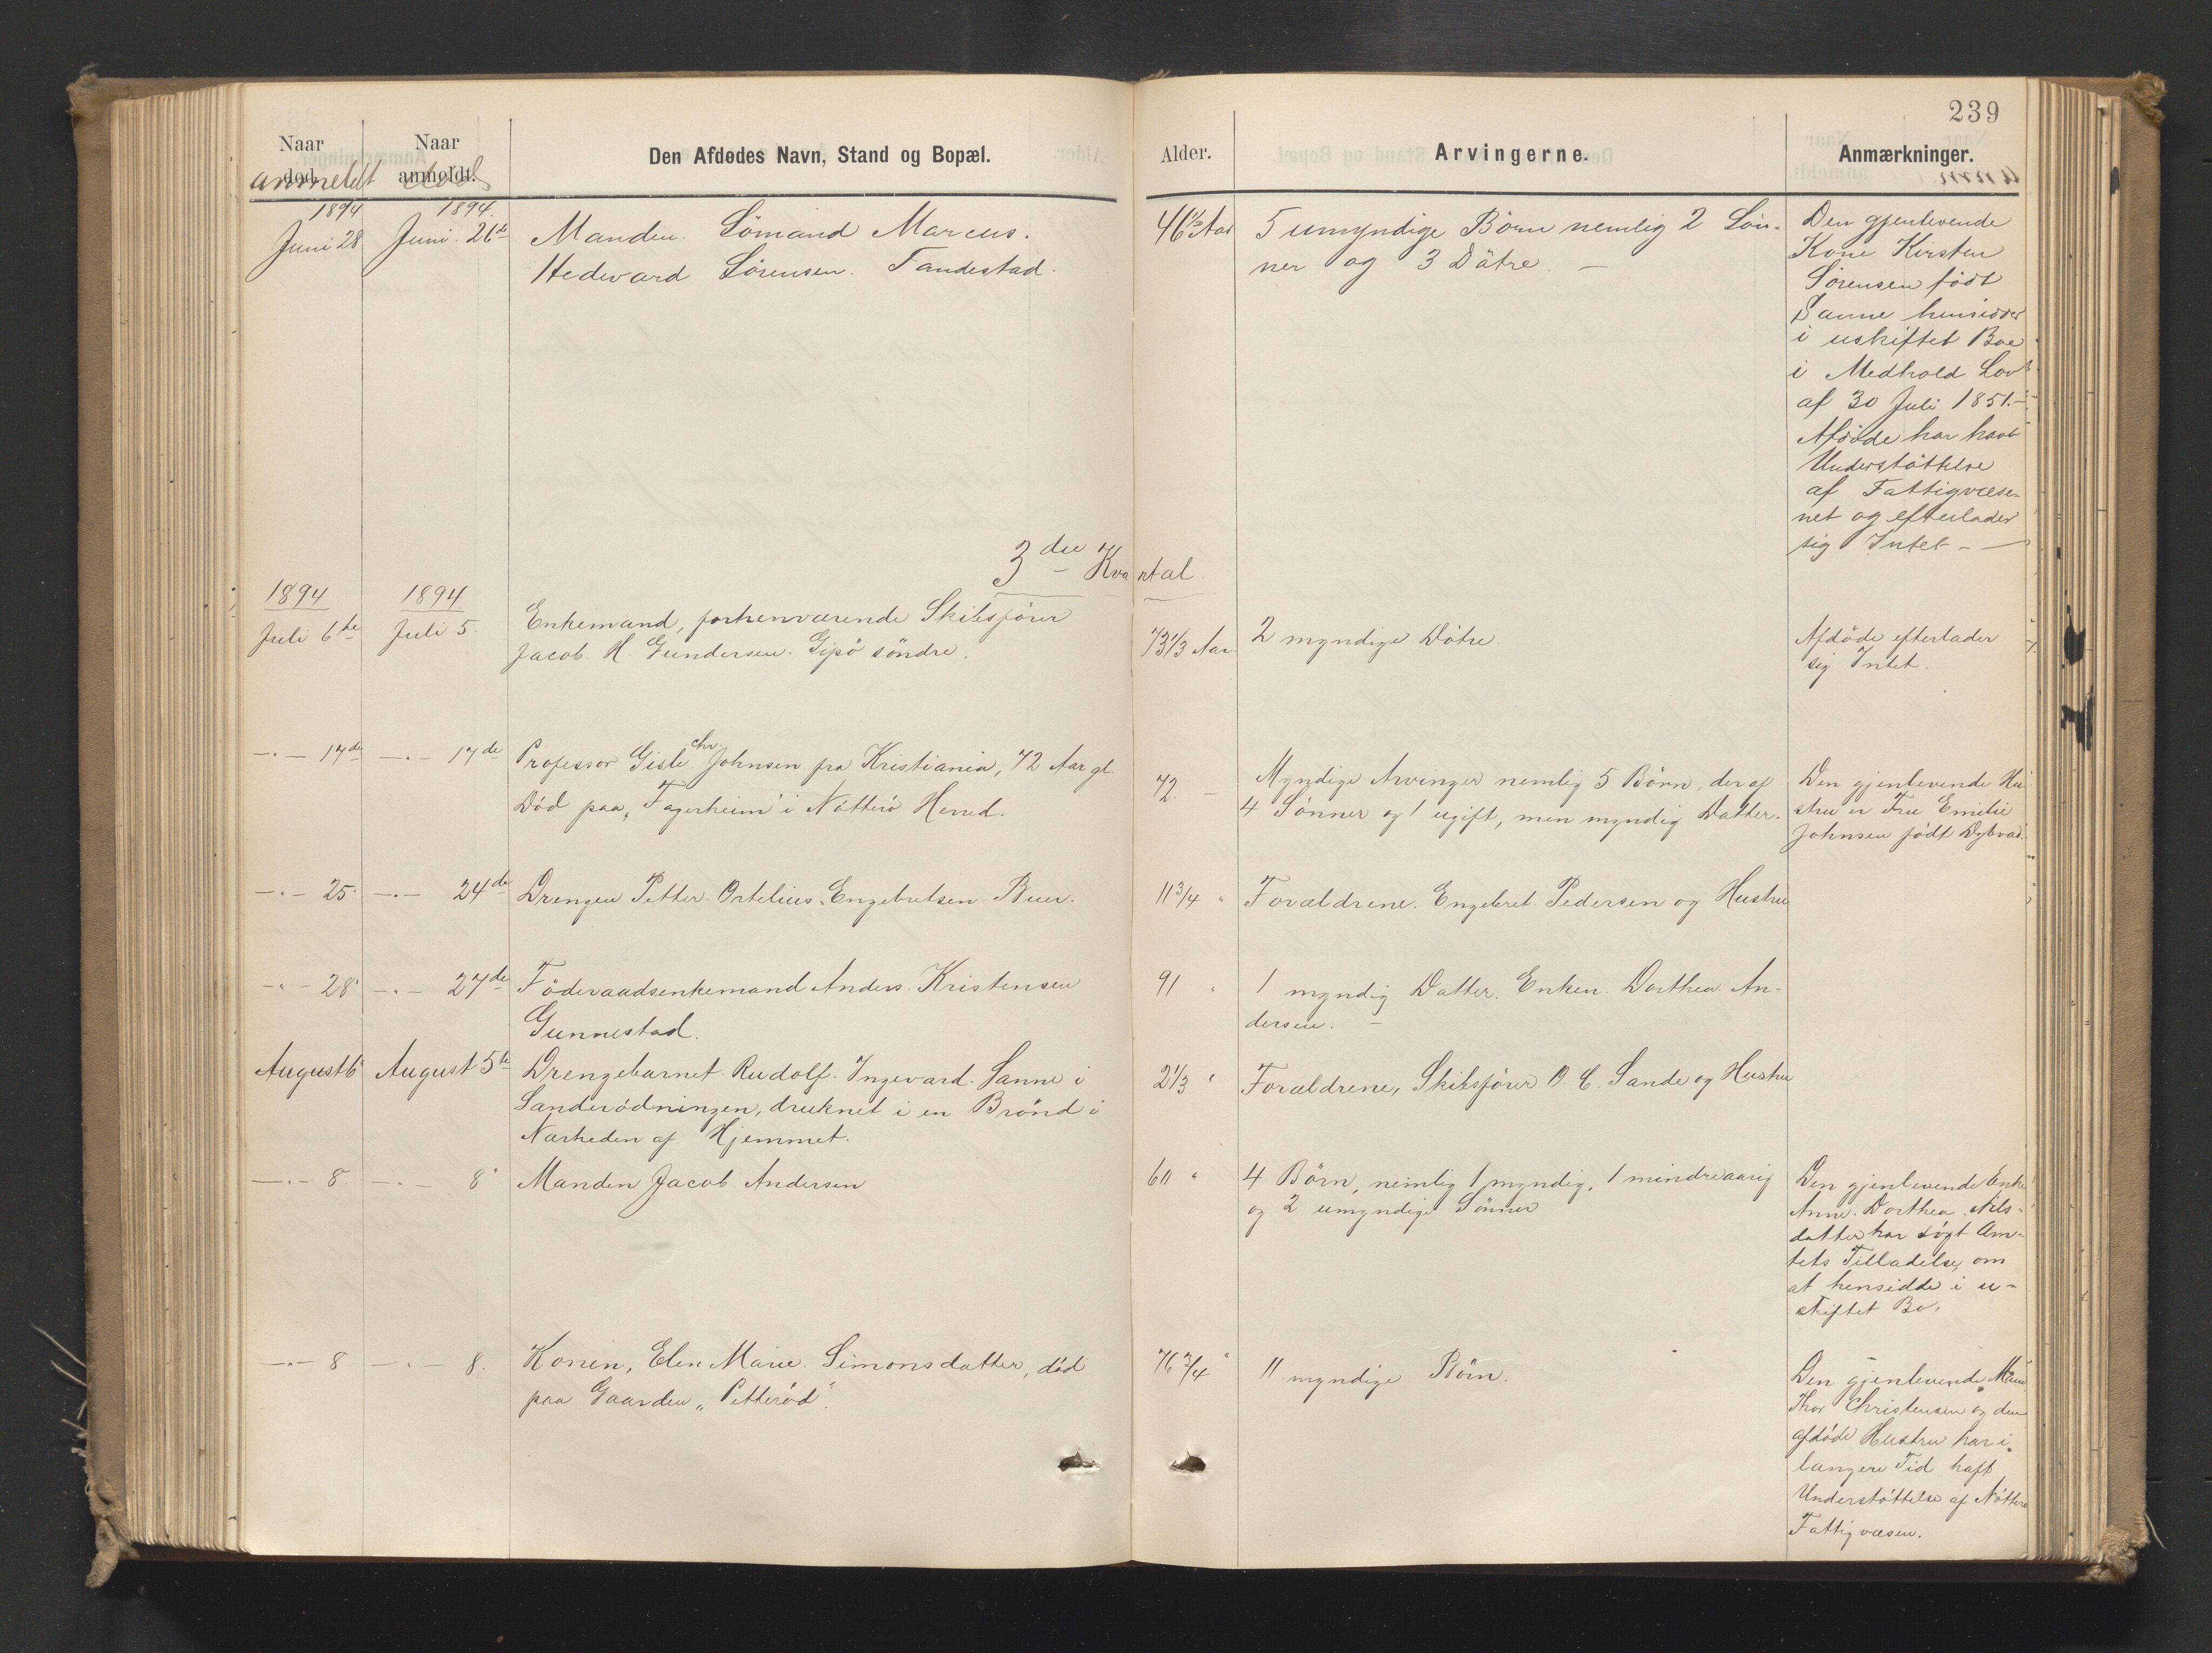 239
Naar død. anmeldt
Naar anmeldt. død
Den Afdødes Navn, Stand og Bopæl.
Alder.
Arvingerne.
Anmærkninger.
1894
Juni 28
1894.
Juni. 26de
Manden Sømand Marcus.
Hedevard Sørensen. Tandestad.
46½ Aar
5 umyndige Børn nemlig 2 Søn-
ner og 3 Døtre. —
Den gjenlevende
Kone Kirsten
Sørensen født
Sanne hensidder
i uskiftet Boe
i Medhold Lov
af 30 Juli 1851.—
Afdøde har havt
Understøttelse
af Fattigvæse-
net og efterlader
sig Intet. —
3die Kvartal.
1894
Juli 6te
1894
Juli 5.
Enkemand, forhenværende Skibsfører
Jacob H. Gundersen. Gipø søndre.
73⅓ Aar
2 myndige Døtre.
Afdøde efterlader
sig Intet.
—.— 17de
—.— 17de
Professor Gisle Chr Johnsen fra Kristiania, 72 Aar gl.
Død paa „Fagerheim" i Nøtterø Herred.
72. —
Myndige Arvinger nemlig 5 Børn, deraf
4 Sønner og 1 ugift, men myndig Datter.
Den gjenlevende Hu-
stru er Fru Emilie
Johnsen født Dybvad.
—.— 25.
—.— 24de
Drengen Petter Ortelius Engebretsen Buer.
11¾ "
Forældrene. Engebret Pedersen og Hustru
—.— 28.
—.— 27de
Føderaadsenkemand Anders Kristensen
Gunnestad.
91 "
1 myndig Datter. Enken Dorthea An-
dersen. —
August 6.
August 5te
Drengebarnet Rudolf. Ingevard. Sanne i
Sanderødningen, druknet i en Brønd i
Nærheden af Hjemmet.
2⅓ "
Forældrene, Skibsfører O. C. Sande og Hustru
—.— 8.
—.— 8.
Manden Jacob Andersen
60 "
4 Børn, nemlig 1 myndig, 1 mindreaarig
og 2 umyndige Sønner
Den gjenlevende Enke
Anne Dorthea Nils-
datter har søgt Am-
tets Tilladelse om
at hensidde i u-
skiftet Bo.
—.— 8
—.— 8.
Konen, Elen Marie Simonsdatter, død
paa Gaarden „Petterød".
76¾ "
11 myndige Børn.
Den gjenlevende Man
Thor Christensen og den
afdøde Hustru har i
længere Tid haft
Understøttelse af Nøtterø
Fattigvæsen.